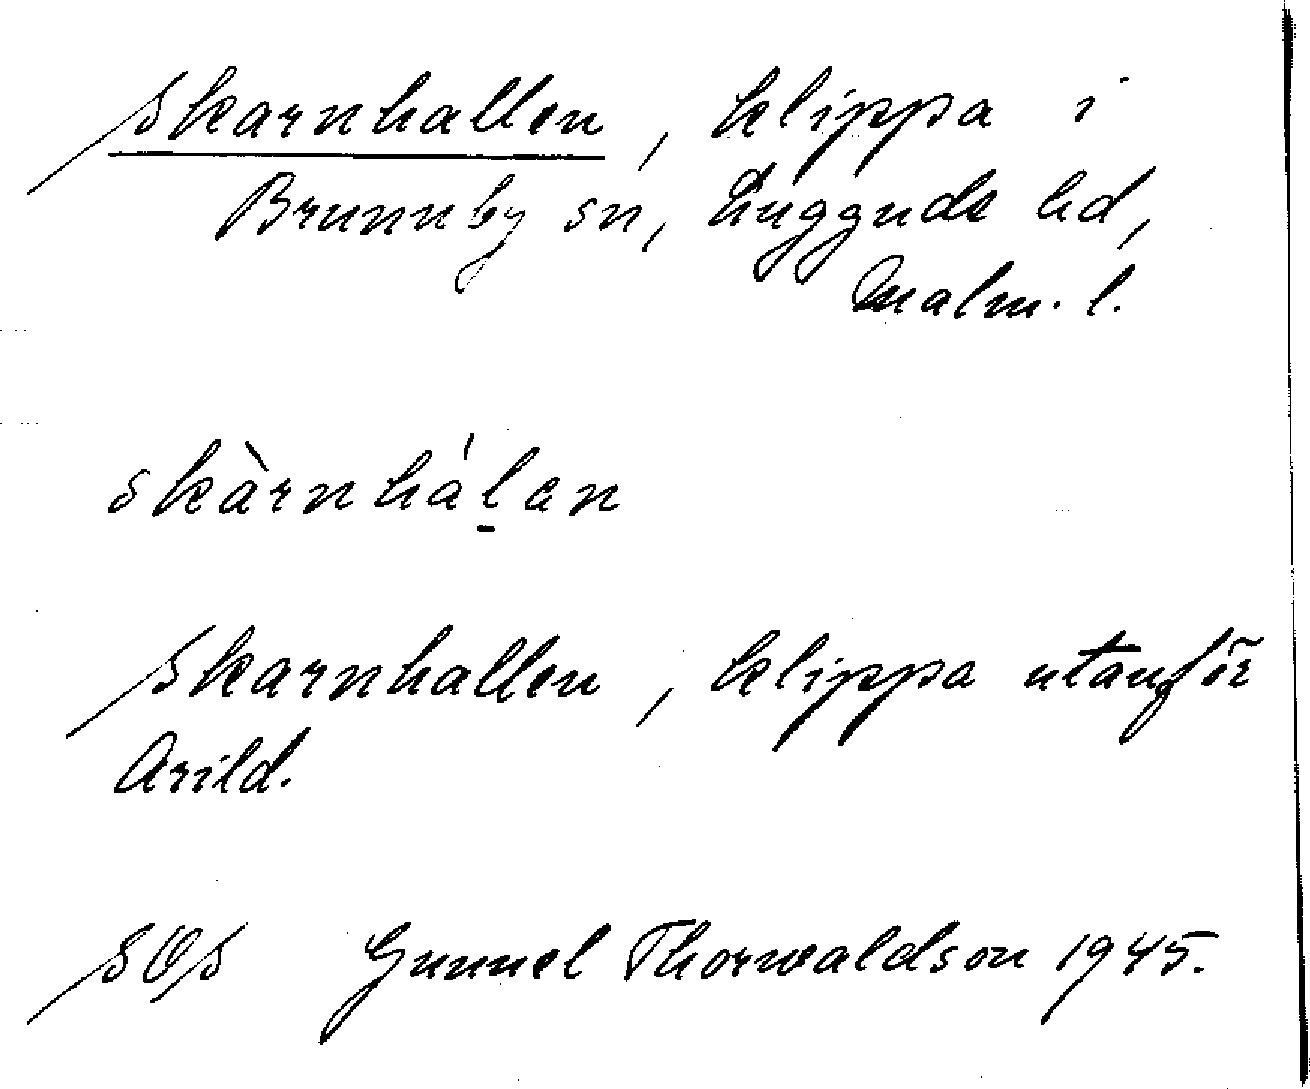 Skarnhallen, klippa i
Brunnby sn, Luggude hd,
Malm. l.
skàrnháḻan
Skarnhallen, klippa utanför
Arild.
SOS Gunnel Thorwaldson 1945.